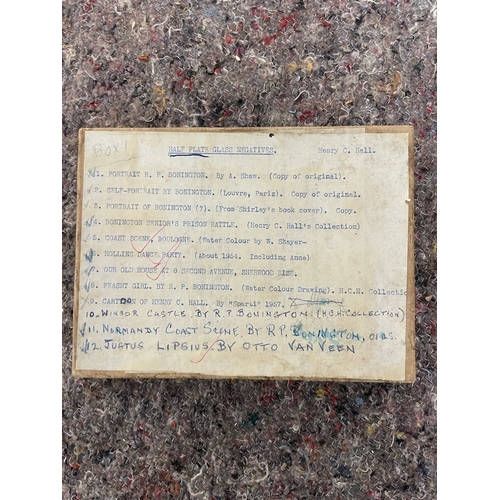 BOX 1
HALF PLATE GLASS NEGATIVES. Henry C. Hall.
1. PORTRAIT R. P. BONINGTON. By A. Shaw. (Copy of original).
2. SELF-PORTRAIT BY BONINGTON. (Louvre, Paris). Copy of original.
3. PORTRAIT OF BONINGTON (?). (From Shirley's book cover). Copy.
4. BONINGTON SENIOR'S PRISON RATTLE. (Henry C. Hall's Collection)
5. COAST SCENE, BOULOGNE. (Water Colour by W. Shayer-
6. HOLLINS DANCE PARTY. (About 1954. Including Anne)
7. OUR OLD HOUSE AT 8 SECOND AVENUE, SHERWOOD RISE.
8. PEASNT GIRL. BY R. P. BONINGTON. (Water Colour Drawing). H.C.H. Collectio
9. CARTOON OF HENRY C. HALL. By "Sparti" 1957.
10. WINDOR CASTLE. BY R.P. BONINGTON. (H.C.H. COLLECTION)
11. NORMANDY COAST SCENE. BY R.P. BONINGTON, OILS.
12. JUSTUS LIPSIUS. BY OTTO VAN VEEN